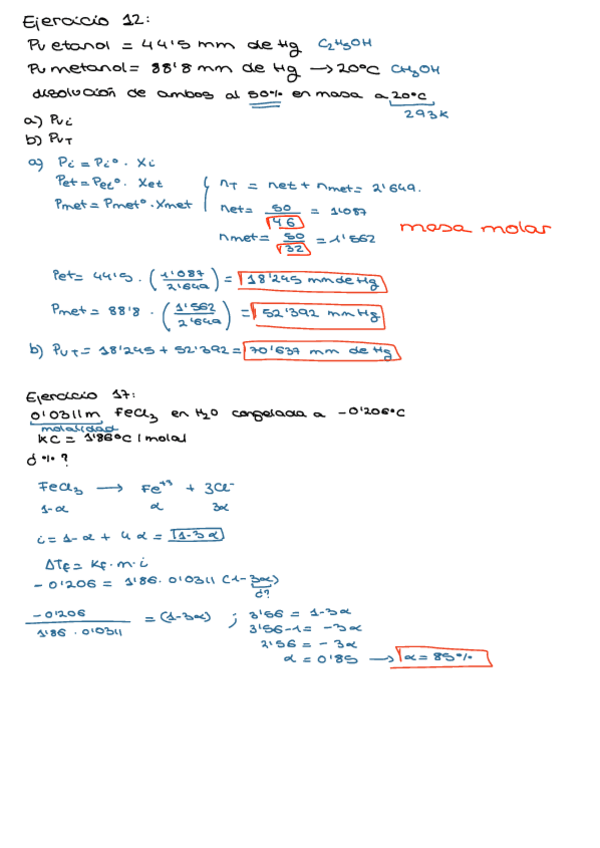 Ejercicio 12:
Pv etanol = 44'5 mm de Hg C₂H₅OH
Pv metanol = 88'8 mm de Hg → 20ºC CH₃OH
disolución de ambos al 50% en masa a 20ºC
293K
a) Pvi
b) PvT
a) Pi = Piº · Xi
Pet = Petº · Xet
Pmet = Pmetº · Xmet
nT = net + nmet = 2'649.
net = 50/46 = 1'087
nmet = 50/32 = 1'562
masa molar
Pet = 44'5 · (1'087/2'649) = 18'245 mm de Hg
Pmet = 88'8 · (1'562/2'649) = 52'392 mm Hg
b) PvT = 18'245 + 52'392 = 70'637 mm de Hg
Ejercicio 17:
0'0311m FeCl₃ en H₂O congelada a -0'206ºC
molalidad
KC = 1'86ºC/molal
α %?
FeCl₃ → Fe⁺³ + 3Cl⁻
1-α α 3α
i = 1-α + 4α = 1-3α
ΔTf = Kf · m · i
-0'206 = 1'86 · 0'0311 (1-3α)
α?
-0'206/1'86 · 0'0311 = (1-3α) ; 3'56 = 1-3α
3'56-1 = -3α
2'56 = -3α
α = 0'85 → α = 85%